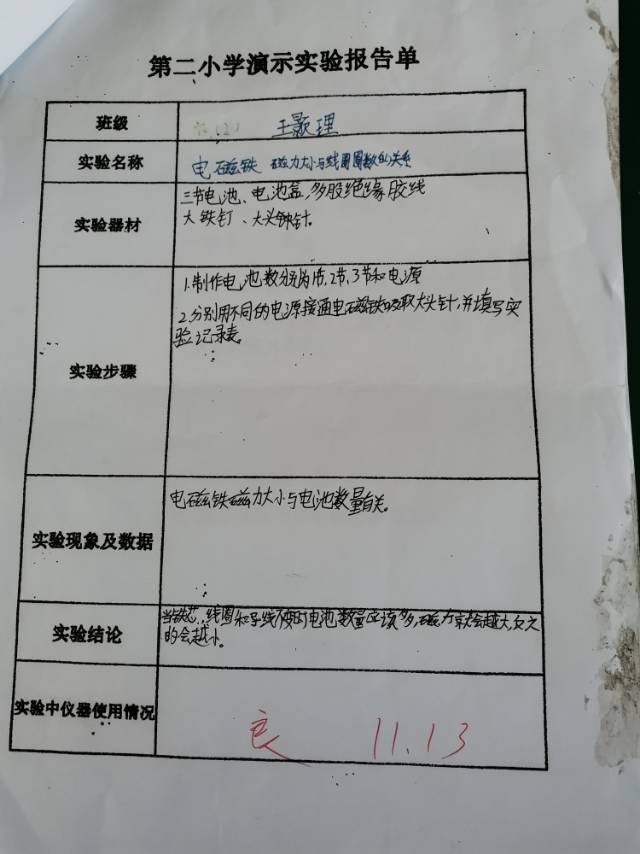 第二小学演示实验报告单
班级 六(2) 王歆理
实验名称 电磁铁 磁力大小与线圈圈数的关系
实验器材
三节电池、电池盒,多股绝缘胶线
大铁钉、大头钟针。
实验步骤
1.制作电池数分别为1节,2节,3节和电源
2.分别用不同的电源接通电磁铁吸取大头针,并填写实
验记录表。
实验现象及数据
电磁铁磁力大小与电池数量有关。
实验结论
当铁芯、线圈和导线不变时电池数量应该多,磁力就会越大,反之
的会越小。
实验中仪器使用情况
良 11.13